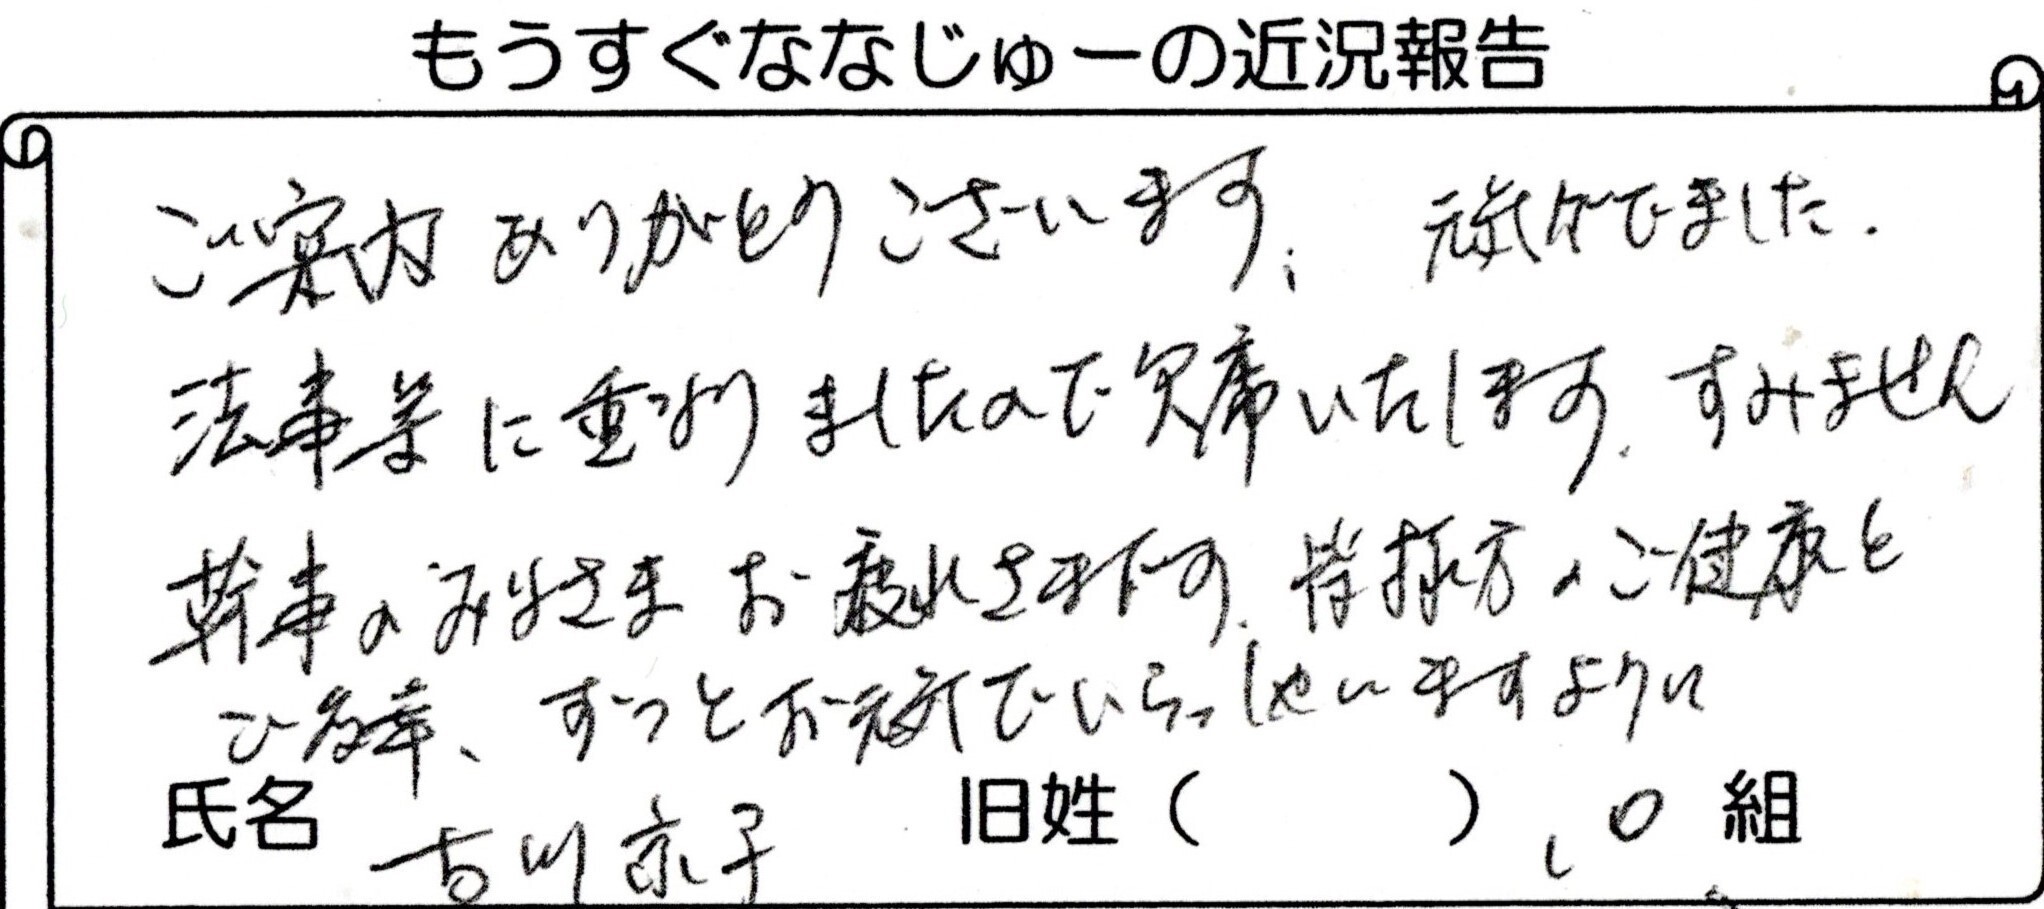 もうすぐななじゅーの近況報告
ご案内ありがとうございます. 元気がでました.
法事等に重なりましたので欠席いたします. すみません
幹事のみなさまお疲れさまです. 皆様方のご健康と
ご多幸、ずっとお元気でいらっしゃいますように
氏名 古川京子 旧姓( ) 10組